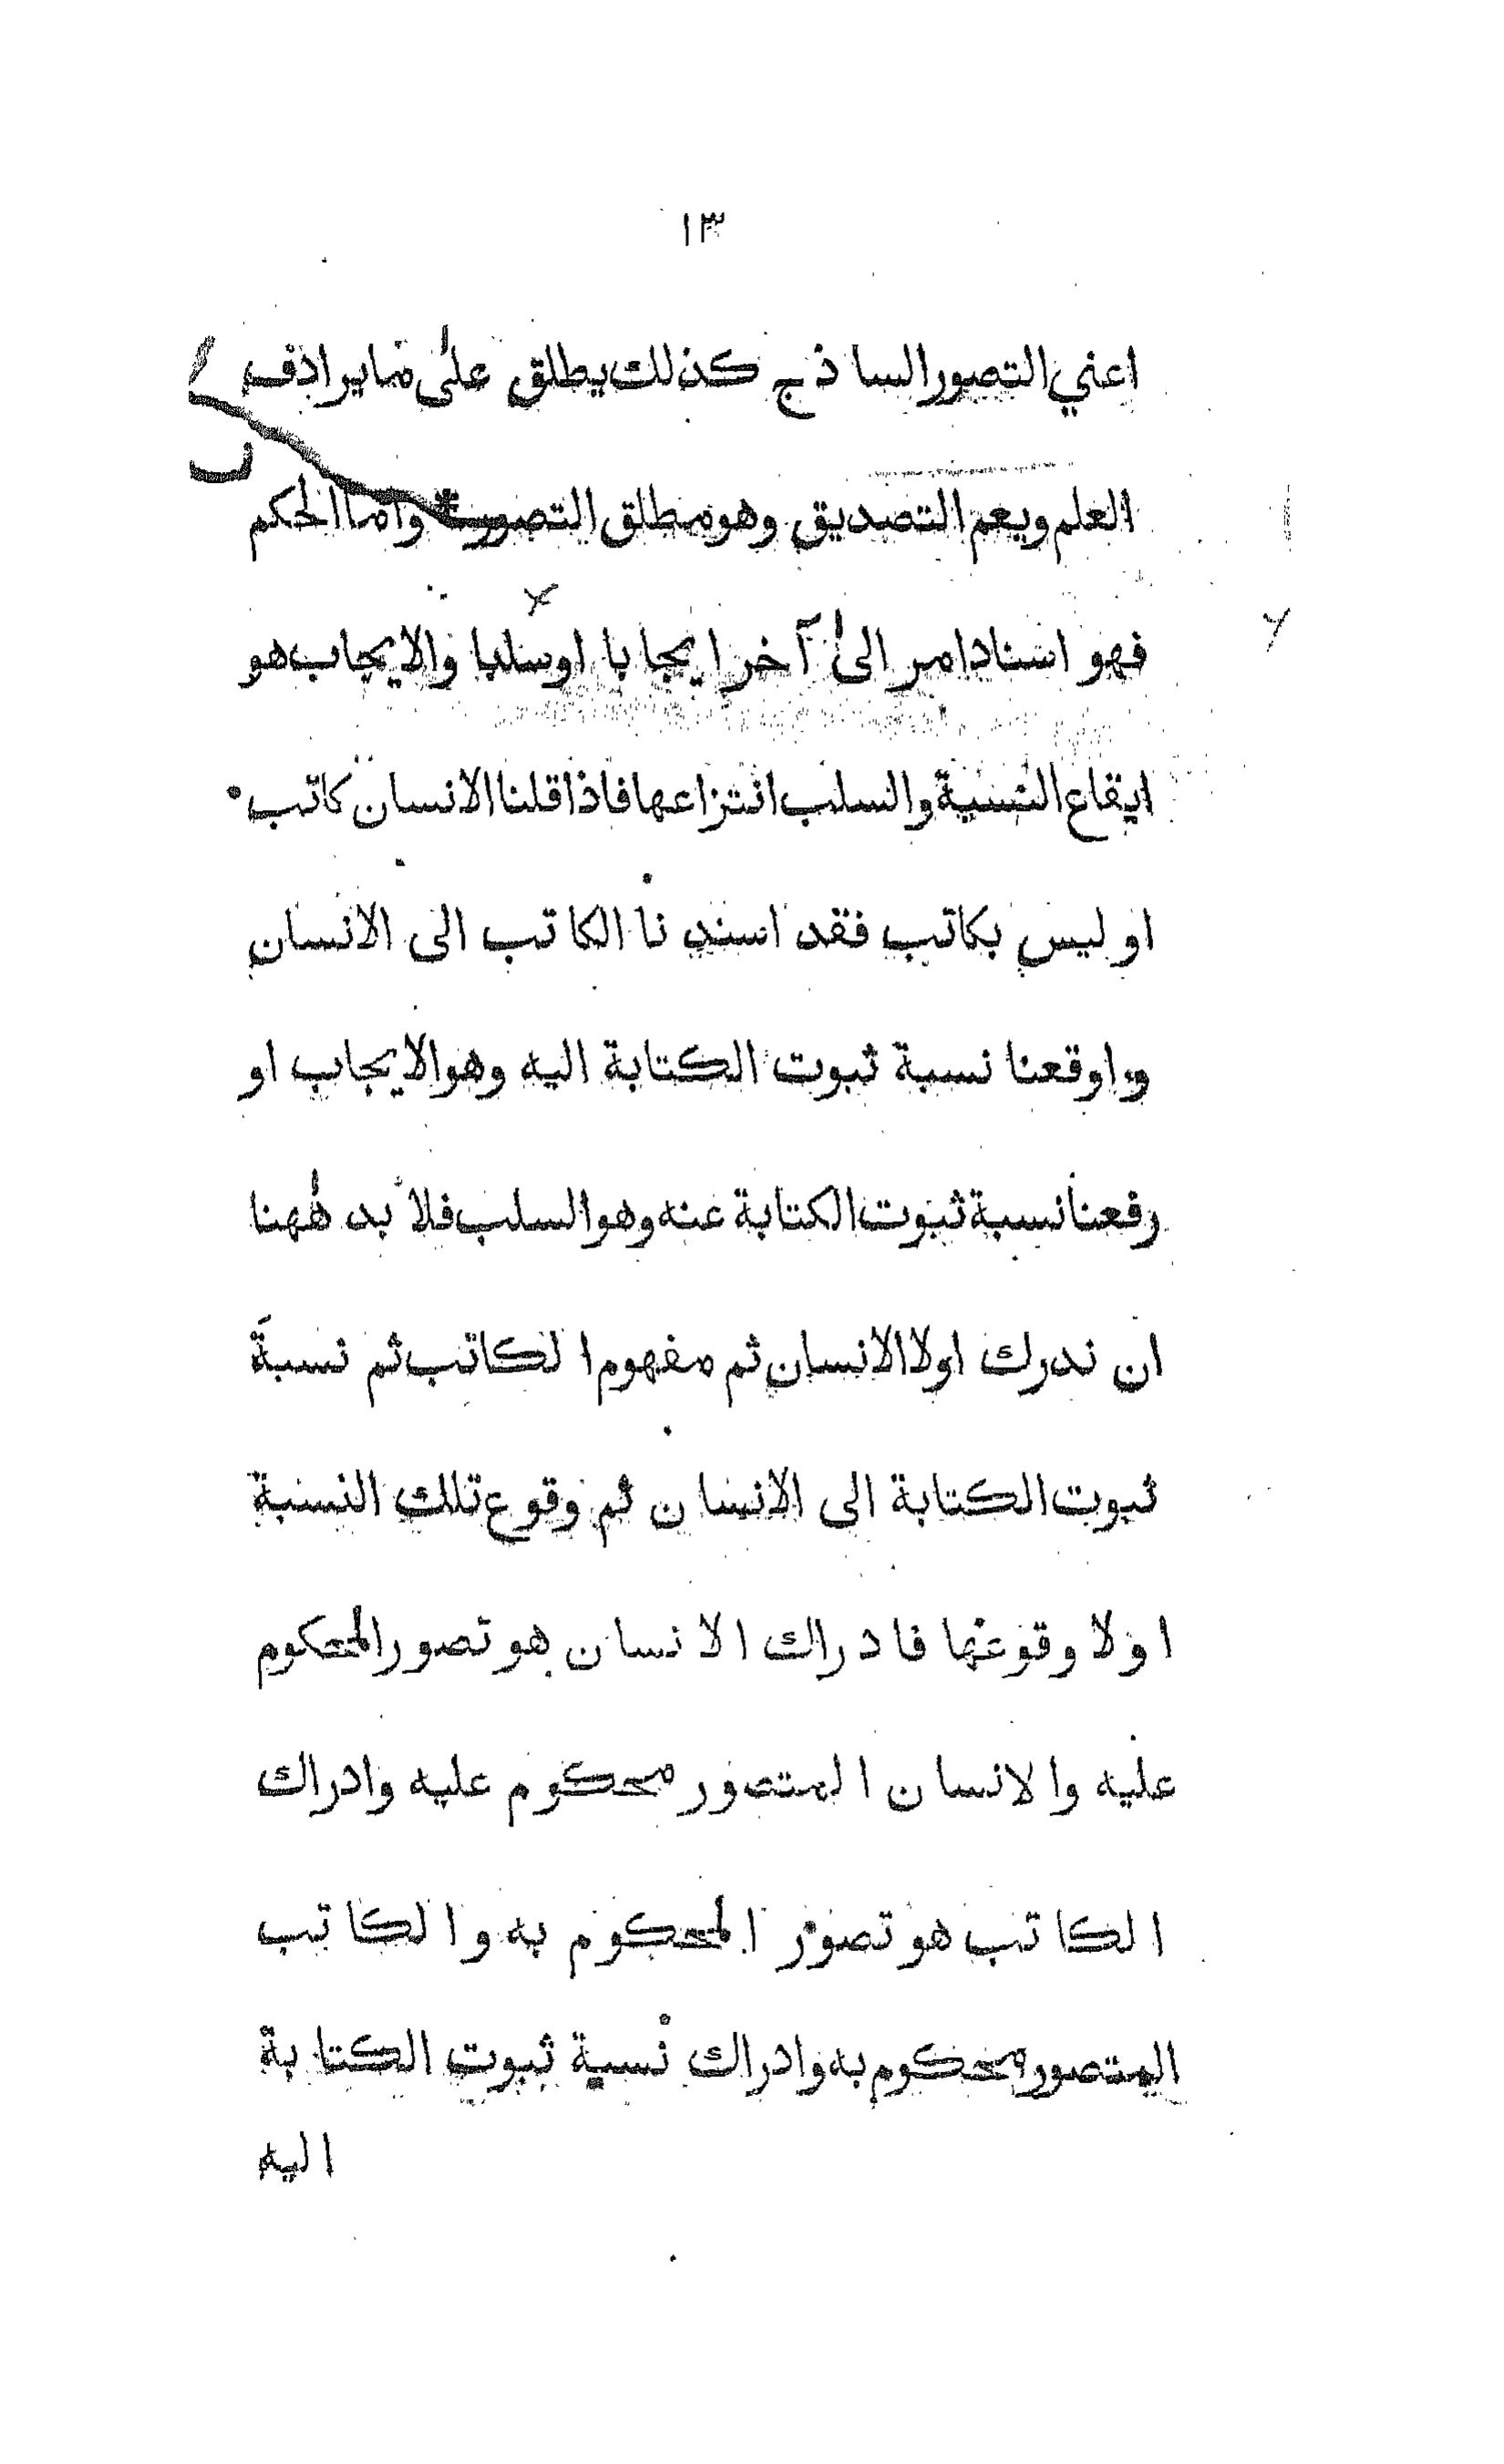 ١٣
اعني التصور الساذج كذلك يطلق علىٰ ما يرادف
العلم ويعم التصديق وهو مطلق التصور * واما الحكم
فهو اسناد امر الىٰ آخر ايجابا او سلبا والايجاب هو
ايقاع النسبة والسلب انتزاعها فاذا قلنا الانسان كاتب
او ليس بكاتب فقد اسندنا الكاتب الى الانسان
واوقعنا نسبة ثبوت الكتابة اليه وهو الايجاب او
رفعنا نسبة ثبوت الكتابة عنه وهو السلب فلا بد هٰهنا
ان ندرك اولا الانسان ثم مفهوم الكاتب ثم نسبةَ
ثبوت الكتابة الى الانسان ثم وقوع تلك النسبة
اولا وقوعها فادراك الانسان هو تصور المحكوم
عليه والانسان المتصور محكوم عليه وادراك
الكاتب هو تصور المحكوم به والكاتب
المتصور محكوم به وادراك نسبة ثبوت الكتابة
اليه